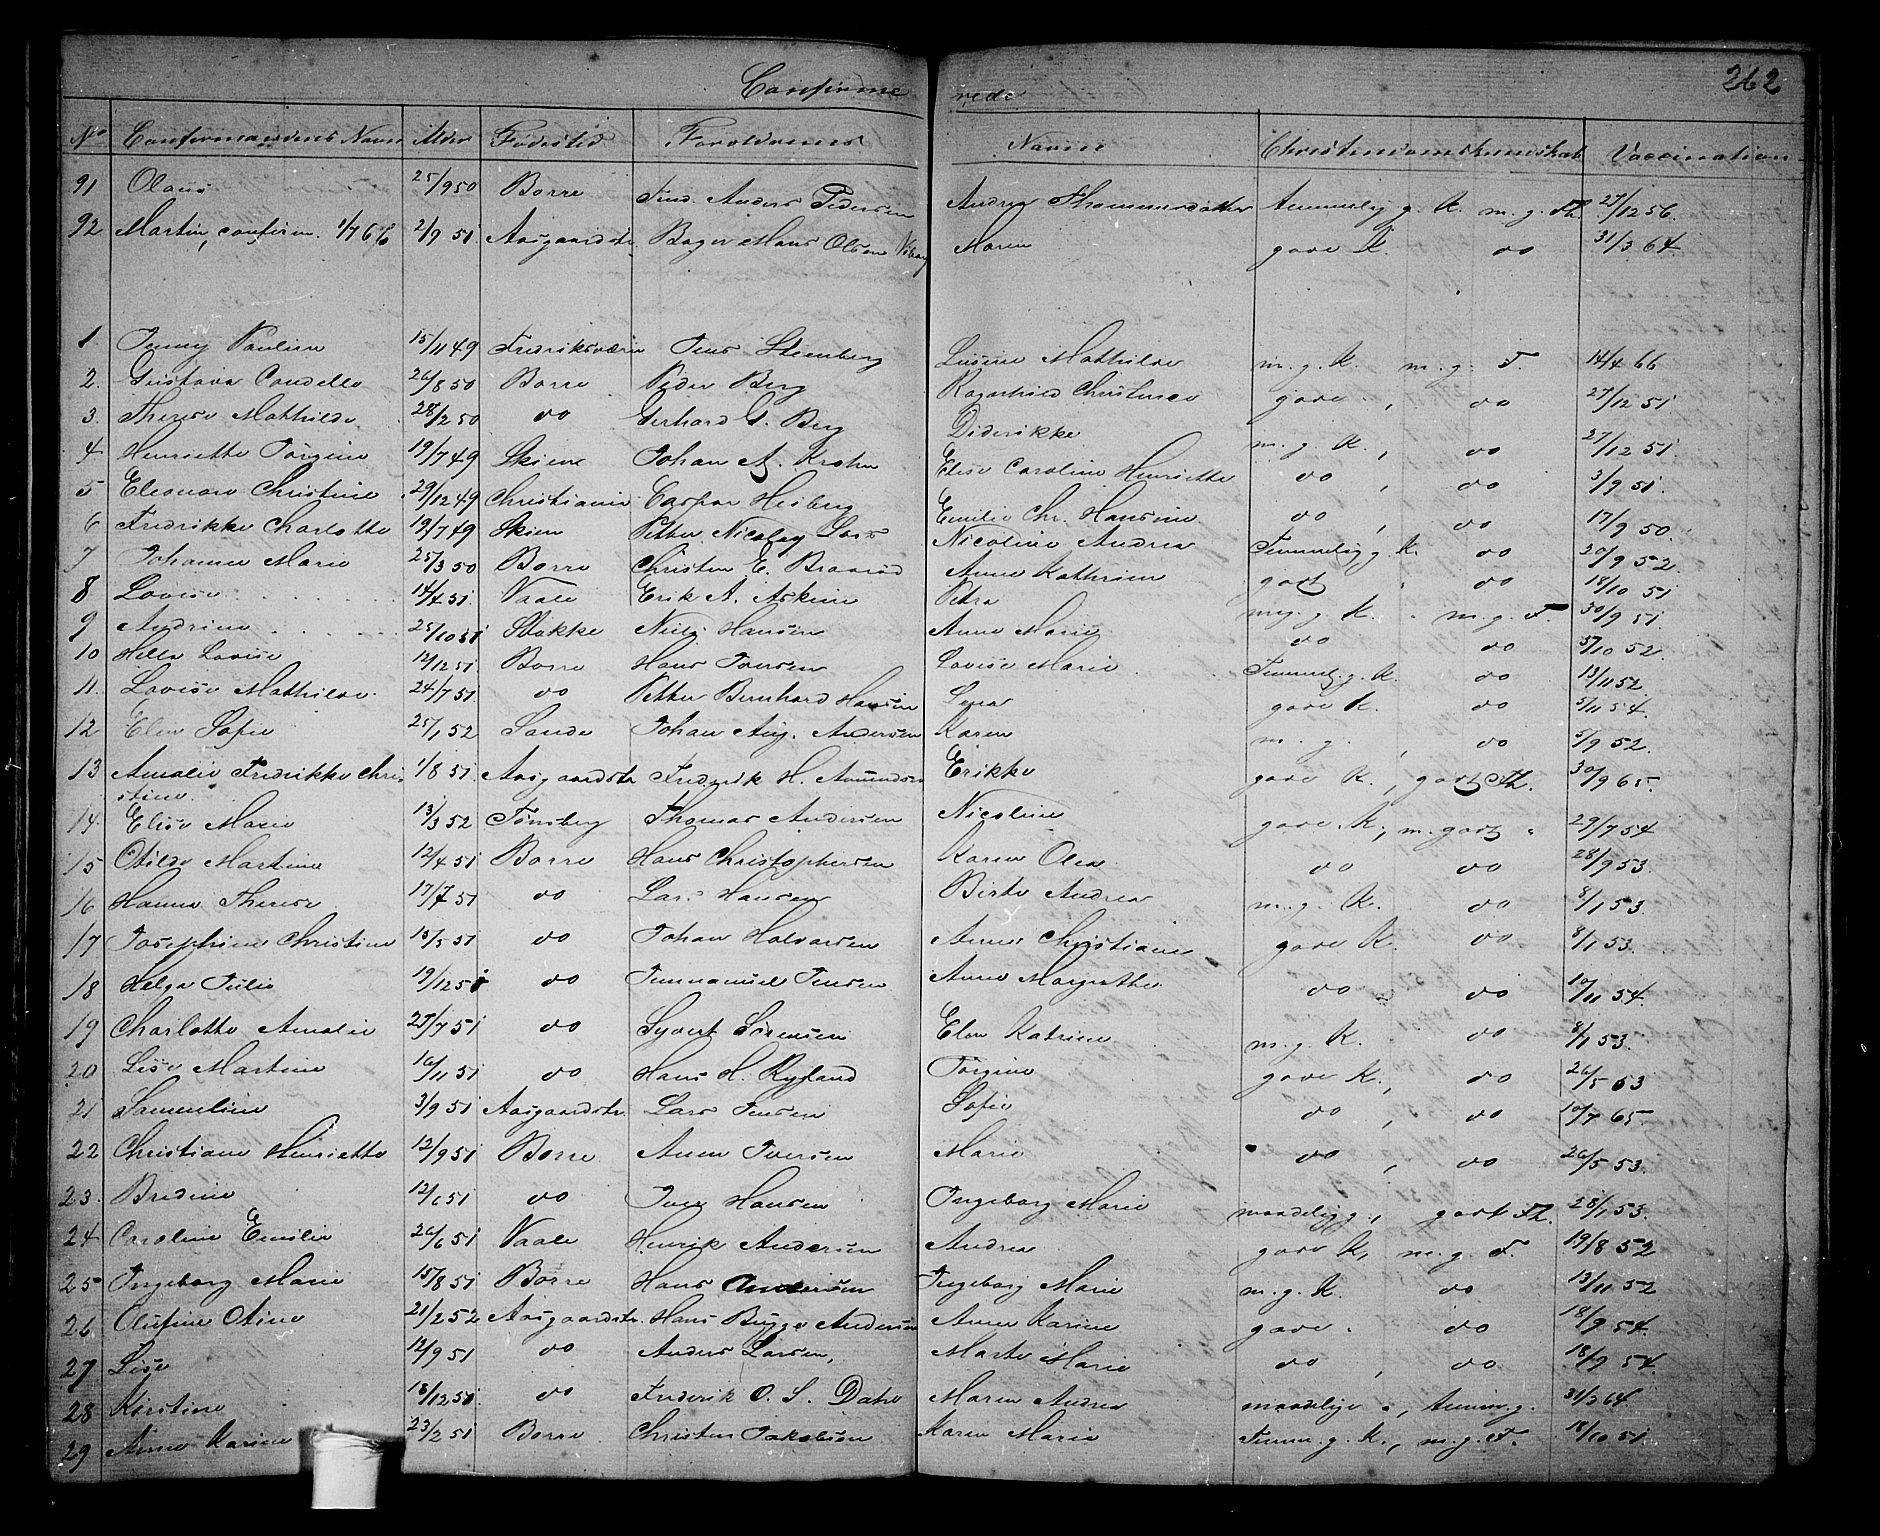 Confirme rede 262
No Confirmandens Navn Alder Fødested Forældrenes Navne Christendomskundskab Vaccination
91 Olaus 25/9 50 Borre Anders Pedersen Andrea Thommesdatter Temmelig g. K. m. g. Fl. 27/12 56.
92 Martin, confirm. 1/7 66 2/9 51 Aasgaardstr. Bager Hans Olsen Maren gode K. do 31/3 64.
1 Jenny Pauline 15/11 49 Fredriksværn Jens Steenberg Lusine Mathilde m. g. K. m. g. F. 14/4 66
2. Gustava Condelle 26/8 50 Borre Peder Berg Ragnhild Christence gode , do 27/12 51
3. Therese Mathilde 28/2 50 do Gerhard G. Berg Diderikke m. g. K , do 27/12 51.
4 Henriette Jørgine 19/7 49 Skiene Johan A. Krohn Elise Caroline Henriette do , do 3/9 51.
5 Eleonore Christine 29/12 49 Christiania Caspar Heiberg Emilie Chr. Hansine do , do 17/9 50.
6 Fredrikke Charlotte 19/7 49 Skien Petter Nicolay Lars Nicoline Andrea Temmelig g. K. do 20/9 52.
7 Johanne Marie 25/3 50 Borre Christen E. Braarød Anne Kathrine godt . do 18/10 51
8 Lovise 14/4 51 Vaale Erik A. Askine Petra mg. g. K. m. g. F. 30/9 51.
9 Andrine 25/10 51 Stokke Niels Hansen Anne Marie do do 5/10 52.
10 Hella Lovise 12/12 51 Borre Hans Iversen Lovise Marie Temmel. g. K. do 13/11 52.
11. Lovise Mathilde. 24/7 51 do Petter Bernhard Hansen Lena gode K. do 5/11 54.
12 Elen Sofie 25/1 52 Sande Johan Aug. Andersen Karen m. g. , do 5/9 52.
13 Amalie Fredrikke Chri- 1/8 51. Aasgaardstr. Frederik H. Amundsen Erikke gode K. , godt Fl. 30/9 65.
stine.
14. Elise Marie 13/3 52 Tønsberg Thomas Andersen Nicoline gode K, m. godt " 29/7 54
15 Otilde Martine 12/4 51 Borre Hans Christophersen Karen Olea do do 28/9 53.
16 Hanne Therese 17/7 51 do Lars Hansen Birte Andrea m. g. K. do 8/1 53.
17 Josephine Christine 15/5 51 do Johan Halvorsen Anne Christiane gode K. do 8/1 53.
18 Helga Julie 19/12 51 do Immanuel Jensen Anne Magrethe do do 10/11 54.
19 Charlotte Amalie 25/7 51 do Syvert Sørensen Elen Katrine m. g. K. do 8/1 53.
20 Lise Martine 16/11 51 do Hans H. Ryland Jørgine gode K., do 26/5 53
21 Samueline 3/9 51 Aasgaardstr. Lars Jensen Sofie do , do 10/7 65.
22 Christiane Henriette 12/9 51 Borre Anen Iversen Marie do , do 26/5 53.
23. Bredine 12/1 51 do Iver Hansen Ingeborg Marie maadelig g. , godt Fl. 28/1 53.
24 Caroline Emilie 26/6 51 Vaale Henrik Andersen Andrea gode K, m. g. F. 19/8 52
25 Ingeborg Marie 15/8 51 Borre Hans Andersen Ingeborg Marie m. g. K. do 13/11 52
26 Olufine Otine 21/2 52 Aasgaardstr. Hans Bugge Andersen Anne Karine gode . do 18/9 54.
27 Lise 12/9 51 do Anders Larsen, Marte Marie do , do 18/9 54.
28 Kirstine 18/12 50 do Frederik O. S. Dahl Maren Andrea maadelige , temm. g. 31/3 64
29 Anne Karine 23/2 51 Borre Christen Jakobsen Karen Marie Temm. g. K. , m. g. F. 18/10 51.